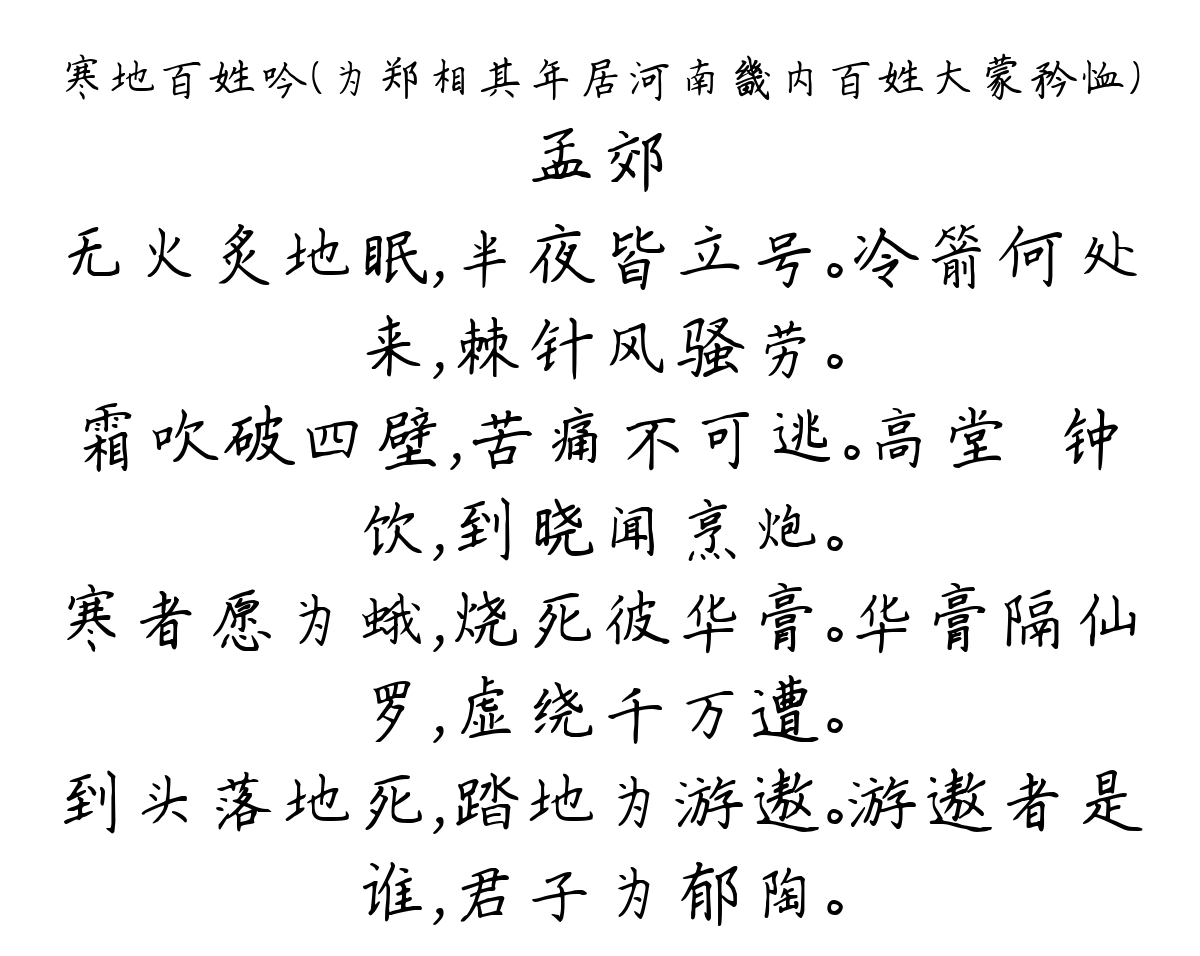 寒地百姓吟(为郑相其年居河南畿内百姓大蒙矜恤)
孟郊
无火炙地眠,半夜皆立号。冷箭何处
来,棘针风骚劳。
霜吹破四壁,苦痛不可逃。高堂 钟
饮,到晓闻烹炮。
寒者愿为蛾,烧死彼华膏。华膏隔仙
罗,虚绕千万遭。
到头落地死,踏地为游遨。游遨者是
谁,君子为郁陶。